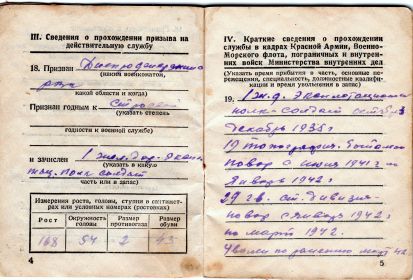 III. Сведения о прохождении призыва на
действительную службу
18. Признан
(каким военкоматом,
какой области и когда)
Признан годным к
(указать степень
годности к военной службе)
и зачислен 1
(указать в какую
полк солдат
часть или в запас)
Измерения роста, головы, ступни в сантимет-
рах или условных номерах (ростовках)
Рост Окружность головы Размер противогаза Размер обуви
168 54 2 43
4
IV. Краткие сведения о прохождении
службы в кадрах Красной Армии, Военно-
Морского флота, пограничных и внутрен-
них войск Министерства внутренних дел
(Указать время прибытия в часть, основные пе-
ремещения, специальность, должностные квалифи-
и время увольнения в запас)
19. 1 ж.д.
полк солдат
декабрь 1938 г
19
повар с июня 1941 г по
январь 1942 г
29 гв. ст. дивизия
повар с января 1942 г
по март 1942.
5